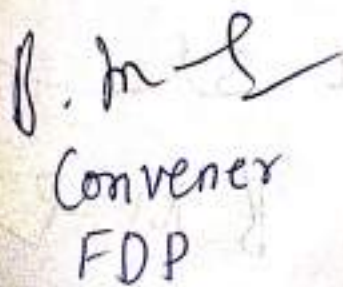 Convener
FDP